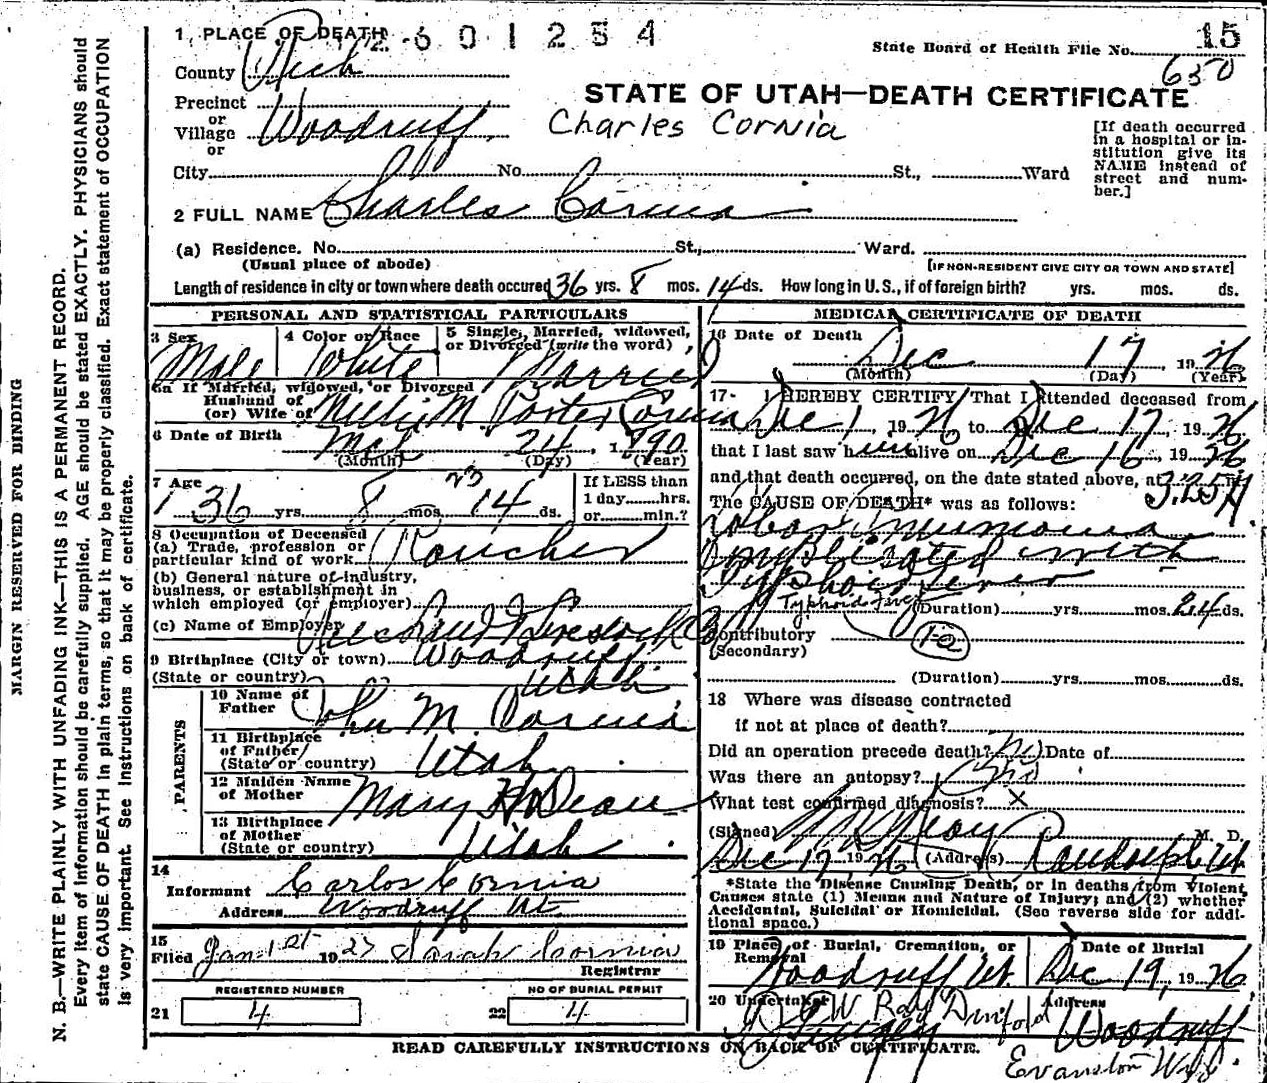 1 PLACE OF DEATH
2601254
State Board of Health File No. 15
650
County Rich
STATE OF UTAH—DEATH CERTIFICATE
Precinct
or
Village Woodruff
or
Charles Cornia
[If death occurred
in a hospital or in-
stitution give its
NAME instead of
street and num-
ber.]
City No. St., Ward
2 FULL NAME Charles Cornia
(a) Residence. No. St., Ward.
(Usual place of abode)
[IF NON-RESIDENT GIVE CITY OR TOWN AND STATE]
Length of residence in city or town where death occured 36 yrs. 8 mos. 14 ds. How long in U.S., if of foreign birth? yrs. mos. ds.
PERSONAL AND STATISTICAL PARTICULARS
3 Sex
Male
4 Color or Race
White
5 Single, Married, widowed,
or Divorced (write the word)
Married
6a If Married, widowed, or Divorced
Husband of
(or) Wife of Millie M. Porter Cornia
6 Date of Birth
Mch 24, 1890
(Month) (Day) (Year)
7 Age
23
36 yrs. 8 mos. 14 ds.
If LESS than
1 day hrs.
or min.?
8 Occupation of Deceased
(a) Trade, profession or
particular kind of work Rancher
(b) General nature of industry,
business, or establishment in
which employed (or employer)
(c) Name of Employer
9 Birthplace (City or town) Woodruff
(State or country) Utah
PARENTS
10 Name of
Father John M. Cornia
11 Birthplace
of Father
(State or country) Utah
12 Maiden Name
of Mother Mary H Dean
13 Birthplace
of Mother
(State or country) Utah
14
Informant Carlos Cornia
Address Woodruff Ut.
15
Filed Jan 1st 1927 Sarah Cornia
Registrar
REGISTERED NUMBER
21 4
NO OF BURIAL PERMIT
22 4
MEDICAL CERTIFICATE OF DEATH
16 Date of Death
Dec 17, 1926
(Month) (Day) (Year)
17- I HEREBY CERTIFY That I attended deceased from
Dec 1, 1926 to Dec 17, 1926
that I last saw him alive on Dec 16, 1926
and that death occurred, on the date stated above, at 3.25 A m.
The CAUSE OF DEATH* was as follows:
Lobar Pneumonia
Complicated with
Typhoid Fever
Typhoid Fever
(Duration) yrs. mos. 24 ds.
Contributory
(Secondary)
1a
(Duration) yrs. mos. ds.
18 Where was disease contracted
if not at place of death?
Did an operation precede death? no Date of
Was there an autopsy? no
What test confirmed diagnosis? X
(Signed) Reay M. D.
Dec 17, 1926 (Address) Randolph Ut
*State the Disease Causing Death, or in deaths from Violent
Causes state (1) Means and Nature of Injury; and (2) whether
Accidental, Suicidal or Homicidal. (See reverse side for addi-
tional space.)
19 Place of Burial, Cremation, or
Removal
Woodruff Ut.
Date of Burial
Dec 19, 1926
20 Undertaker
W Ray Dunford
Address
Woodruff
Evanston Wyo.
READ CAREFULLY INSTRUCTIONS ON BACK OF CERTIFICATE.
MARGIN RESERVED FOR BINDING
N. B.—WRITE PLAINLY WITH UNFADING INK—THIS IS A PERMANENT RECORD.
Every item of information should be carefully supplied. AGE should be stated EXACTLY. PHYSICIANS should
state CAUSE OF DEATH in plain terms, so that it may be properly classified. Exact statement of OCCUPATION
is very important. See instructions on back of certificate.